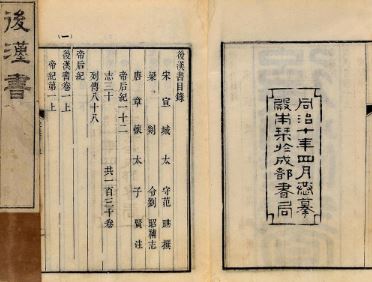 同治十年四月恭摹
殿本栞於成都書局
後漢書目錄
宋宣城太守范曄撰
梁剡令劉昭補志
唐章懷太子賢注
帝后紀一十二
志三十
列傳八十八
共一百三十卷
後漢書卷一上
帝紀第一上
一
後漢書